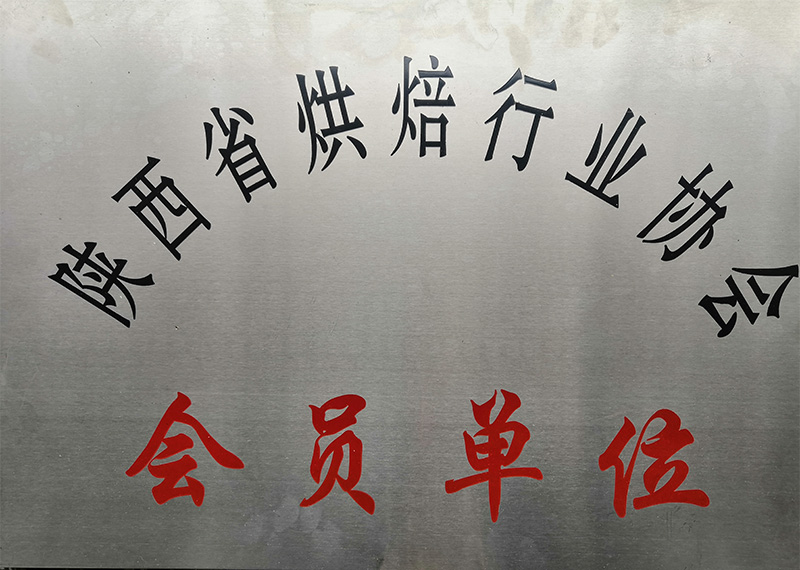 陕西省烘焙行业协会
会员单位